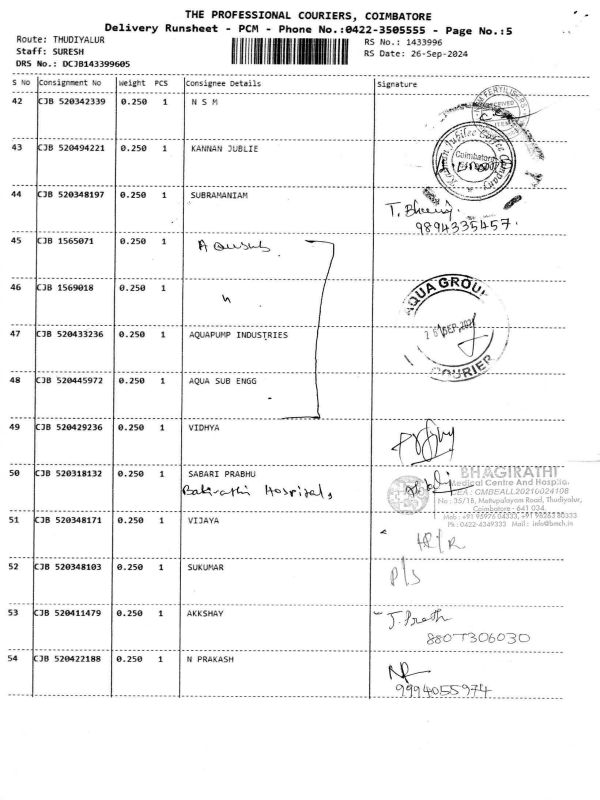 THE PROFESSIONAL COURIERS, COIMBATORE
Delivery Runsheet - PCM - Phone No.:0422-3505555 - Page No.:5
Route: THUDIYALUR
RS No.: 1433996
Staff: SURESH
RS Date: 26-Sep-2024
DRS No.: DCJB143399605
S No Consignment No Weight PCS Consignee Details Signature
42 CJB 520342339 0.250 1 N S M
43 CJB 520494221 0.250 1 KANNAN JUBLIE
Kannan Jubilee Coffee Company
Coimbatore
44 CJB 520348197 0.250 1 SUBRAMANIAM
9894335457.
45 CJB 1565071 0.250 1
46 CJB 1569018 0.250 1 "
AQUA GROUP
COURIER
47 CJB 520433236 0.250 1 AQUAPUMP INDUSTRIES
48 CJB 520445972 0.250 1 AQUA SUB ENGG
49 CJB 520429236 0.250 1 VIDHYA
50 CJB 520318132 0.250 1 SABARI PRABHU
Hospitals
BHAGIRATHI
Medical Centre And Hospital
CEA : CMBEALL20210024108
No : 35/1B, Mettupalayam Road, Thudiyalur,
Coimbatore - 641 034.
Mob : +91 95976 04333, +91 98263 80333
Ph : 0422-4349333 Mail : info@bmch.in
51 CJB 520348171 0.250 1 VIJAYA
52 CJB 520348103 0.250 1 SUKUMAR
P/S
53 CJB 520411479 0.250 1 AKKSHAY
8807306030
54 CJB 520422188 0.250 1 N PRAKASH
9994055974